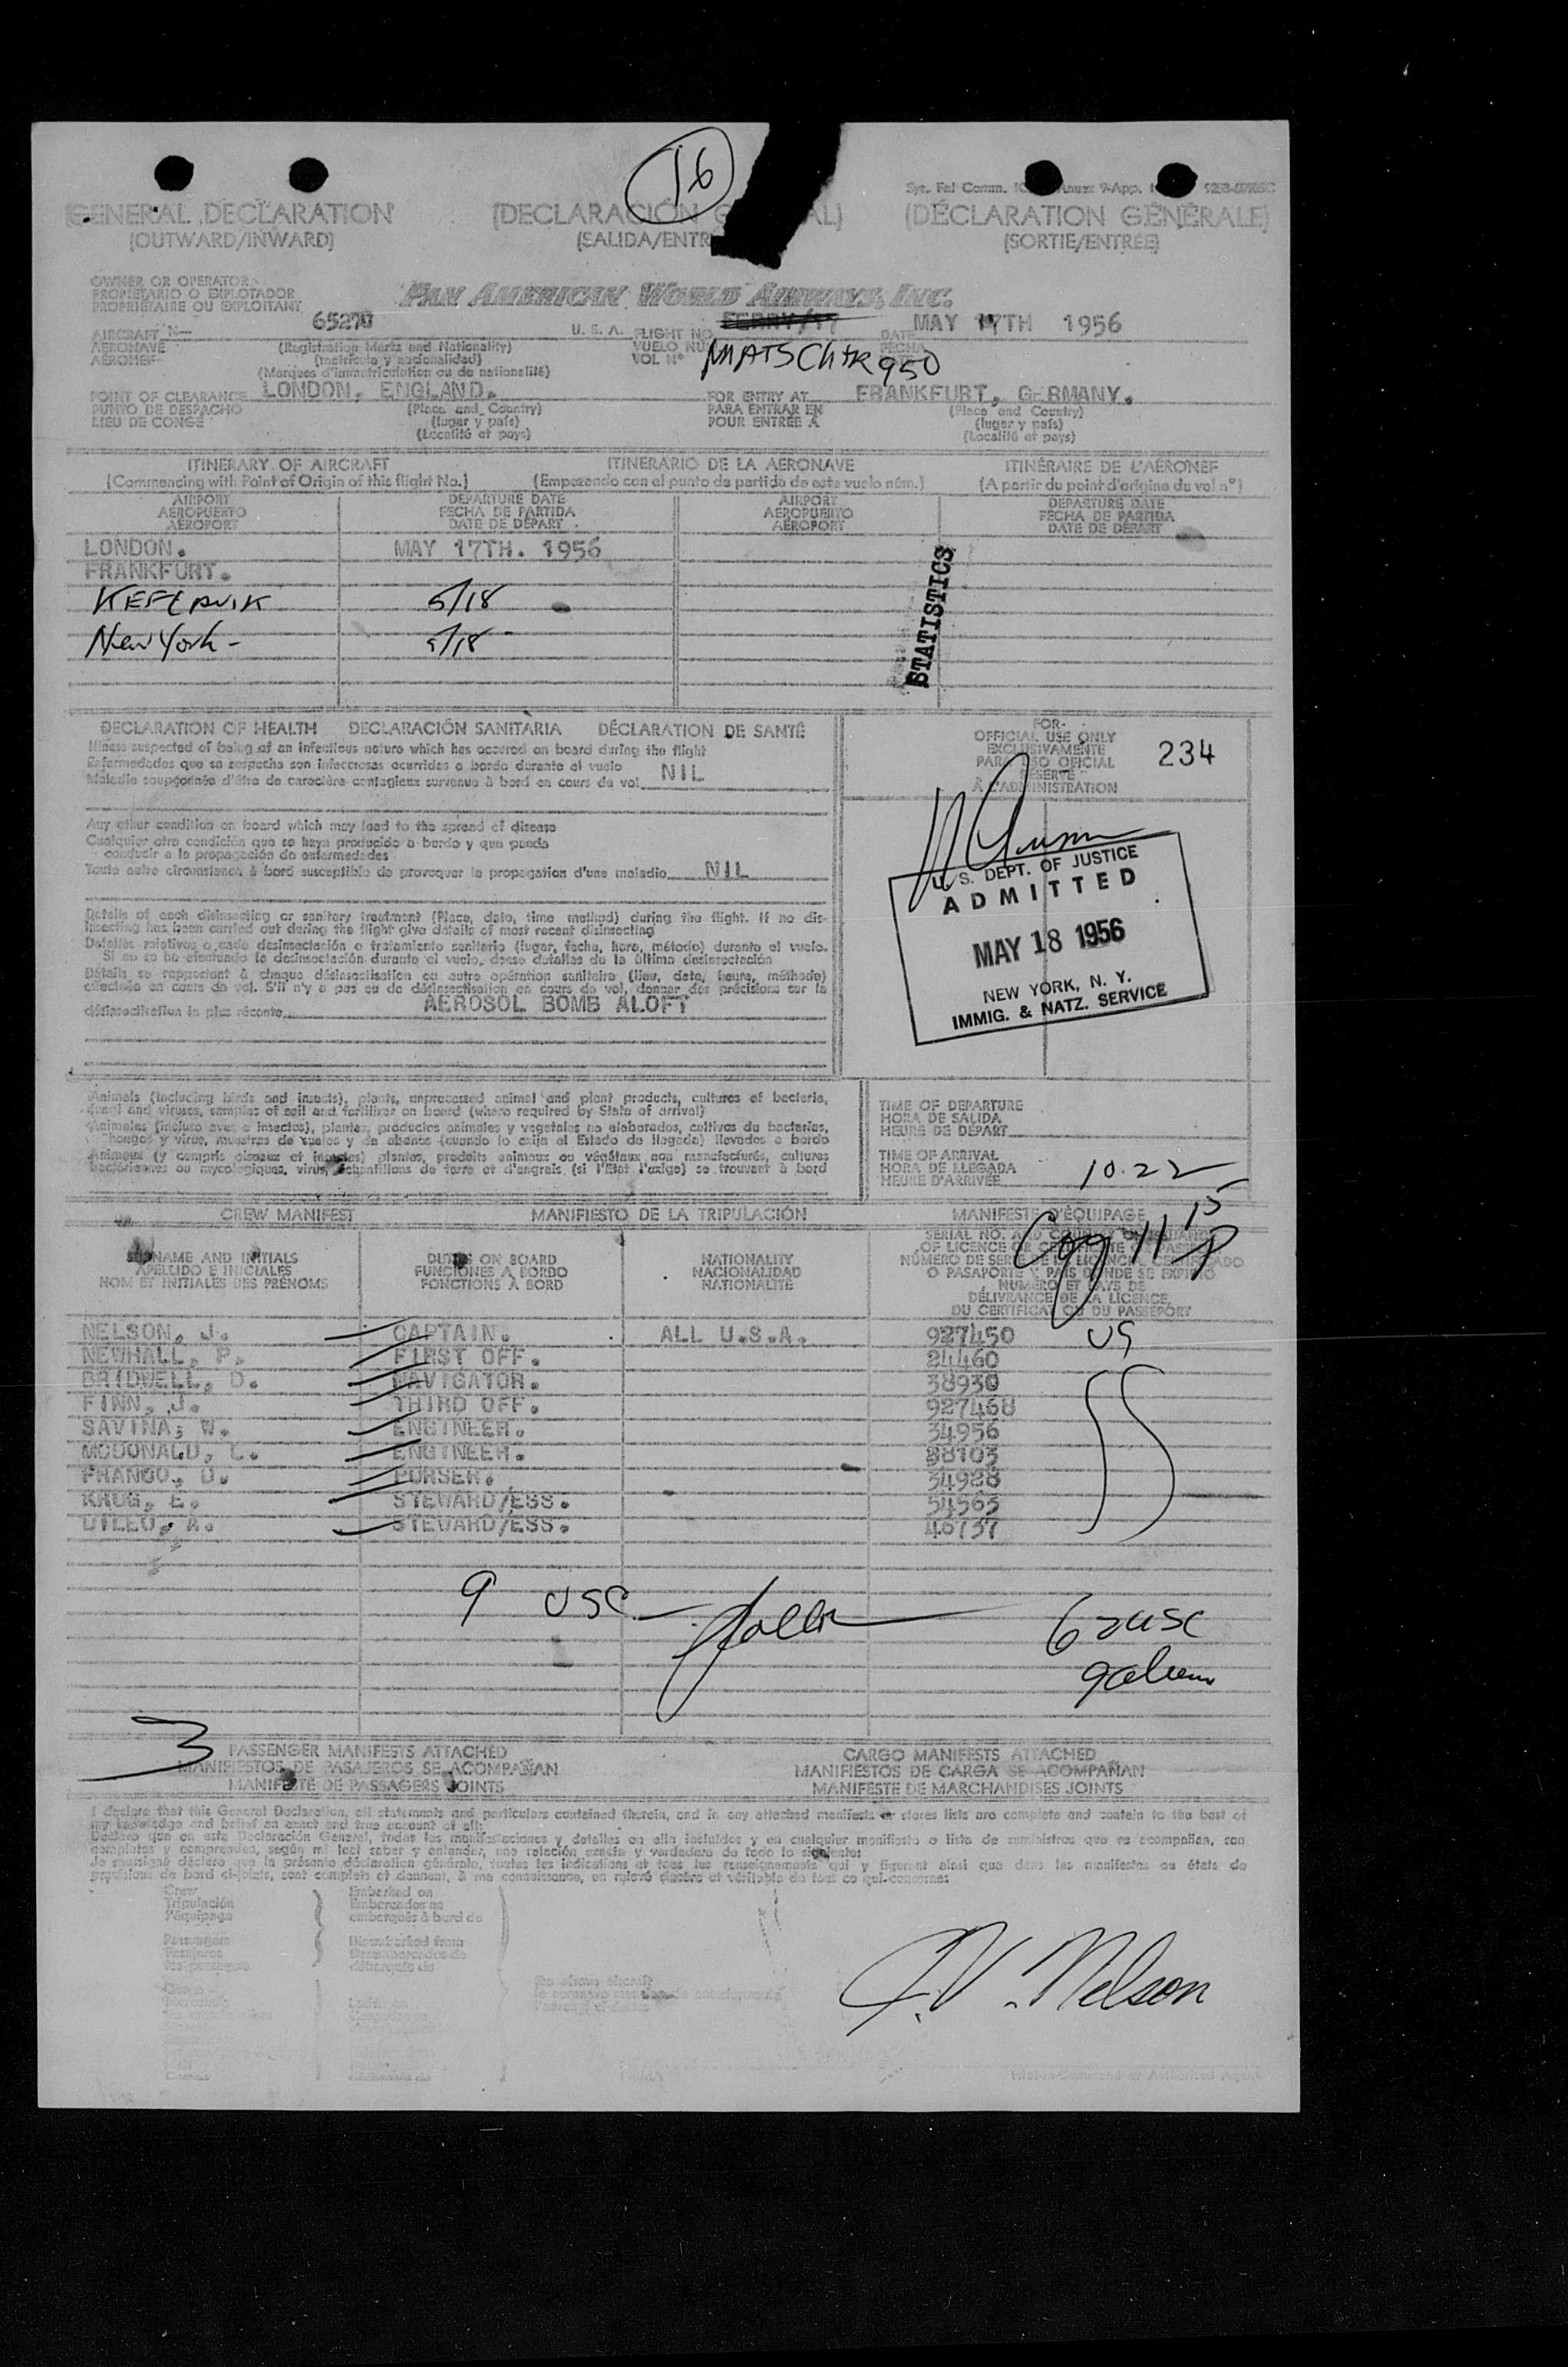 16
Annex 9-App.
GENERAL DECLARATION
(OUTWARD/INWARD)
(DECLARACIÓN
(SALIDA/ENTR
(DÉCLARATION GÉNÉRALE)
(SORTIE/ENTRÉE)
OWNER OR OPERATOR
PROPIETARIO O EXPLOTADOR
PROPRIÉTAIRE OU EXPLOITANT
PAN AMERICAN WORLD AIRWAYS, INC.
AIRCRAFT N— 65270 U. S. A.
AERONAVE (Registration Marks and Nationality)
AÉRONEF (matrícula y nacionalidad)
(Marques d'immatriculation ou de nationalité)
FLIGHT NO. FERRY/17
VUELO NÚM
VOL N° MATS Chtr 950
DATE MAY 17TH 1956
FECHA
POINT OF CLEARANCE LONDON, ENGLAND.
PUNTO DE DESPACHO (Place and Country)
LIEU DE CONGÉ (lugar y país)
(Localité et pays)
FOR ENTRY AT FRANKFURT, GERMANY.
PARA ENTRAR EN (Place and Country)
POUR ENTRÉE À (lugar y país)
(Localité et pays)
ITINERARY OF AIRCRAFT ITINERARIO DE LA AERONAVE ITINÉRAIRE DE L'AÉRONEF
(Commencing with Point of Origin of this flight No.) (Empezando con el punto de partida de este vuelo núm.) (A partir du point d'origine du vol n°)
AIRPORT DEPARTURE DATE AIRPORT DEPARTURE DATE
AEROPUERTO FECHA DE PARTIDA AEROPUERTO FECHA DE PARTIDA
AÉROPORT DATE DE DÉPART AÉROPORT DATE DE DÉPART
LONDON. MAY 17TH. 1956
FRANKFURT.
KEFLAVIK 5/18
New York - 5/18
STATISTICS
DECLARATION OF HEALTH DECLARACIÓN SANITARIA DÉCLARATION DE SANTÉ
Illness suspected of being of an infectious nature which has occured on board during the flight
Enfermedades que se sospecha son infecciosas ocurridas a bordo durante el vuelo
Maladie soupçonnée d'être de caractère contagieux survenue à bord en cours de vol NIL
Any other condition on board which may lead to the spread of disease
Cualquier otra condición que se haya producido a bordo y que pueda
conducir a la propagación de enfermedades
Toute autre circonstance à bord susceptible de provoquer la propagation d'une maladie NIL
Details of each disinsecting or sanitary treatment (Place, date, time method) during the flight. If no dis-
insecting has been carried out during the flight give details of most recent disinsecting
Detalles relativos a cada desinsectación o tratamiento sanitario (lugar, fecha, hora, método) durante el vuelo.
Si no se ha efectuado la desinsectación durante el vuelo, dense detalles de la última desinsectación
Détails se rapportant à chaque désinsectisation ou autre opération sanitaire (lieu, date, heure, méthode)
effectuée en cours de vol. S'il n'y a pas eu de désinsectisation en cours de vol, donner des précisions sur la
désinsectisation la plus récente AEROSOL BOMB ALOFT
FOR
OFFICIAL USE ONLY
EXCLUSIVAMENTE
PARA USO OFICIAL
RÉSERVÉ
À L'ADMINISTRATION
234
U. S. DEPT. OF JUSTICE
ADMITTED
MAY 18 1956
NEW YORK, N. Y.
IMMIG. & NATZ. SERVICE
Animals (including birds and insects), plants, unprocessed animal and plant products, cultures of bacteria,
fungi and viruses, samples of soil and fertilizer on board (where required by State of arrival)
Animales (incluso aves e insectos), plantas, productos animales y vegetales no elaborados, cultivos de bacterias,
hongos y virus, muestras de suelos y de abonos (cuando lo exija el Estado de llegada) llevados a bordo
Animaux (y compris oiseaux et insectes) plantes, produits animaux ou végétaux non manufacturés, cultures
bactériennes ou mycologiques, virus, échantillons de terre et d'engrais (si l'Etat l'exige) se trouvant à bord
TIME OF DEPARTURE
HORA DE SALIDA
HEURE DE DÉPART
TIME OF ARRIVAL
HORA DE LLEGADA
HEURE D'ARRIVÉE 10.22
CREW MANIFEST MANIFIESTO DE LA TRIPULACIÓN MANIFESTE D'ÉQUIPAGE
SURNAME AND INITIALS DUTIES ON BOARD NATIONALITY
APELLIDO E INICIALES FUNCIONES A BORDO NACIONALIDAD
NOM ET INITIALES DES PRÉNOMS FONCTIONS À BORD NATIONALITÉ
NUMÉRO ET PAYS DE
DÉLIVRANCE DE LA LICENCE,
DU CERTIFICAT OU DU PASSEPORT
NELSON, J. CAPTAIN. ALL U.S.A. 927450 US
NEWHALL, P. FIRST OFF. 24460
BRIDWELL, D. NAVIGATOR. 38930
FINN, J. THIRD OFF. 927468
SAVINA, W. ENGINEER. 34956
MCDONALD, L. ENGINEER. 88103
FRANCO, D. PURSER. 34928
KRUG, E. STEWARD/ESS. 54565
DILEO, A. STEWARD/ESS. 46757
9 USC
62 USC
3
PASSENGER MANIFESTS ATTACHED
MANIFIESTOS DE PASAJEROS SE ACOMPAÑAN
MANIFESTE DE PASSAGERS JOINTS
CARGO MANIFESTS ATTACHED
MANIFIESTOS DE CARGA SE ACOMPAÑAN
MANIFESTE DE MARCHANDISES JOINTS
I declare that this General Declaration, all statements and particulars contained therein, and in any attached manifests or stores lists are complete and contain to the best of
my knowledge and belief an exact and true account of all:
Declaro que en esta Declaración General, todas las manifestaciones y detalles en ella incluidos y en cualquier manifiesto o lista de suministros que se acompañan, son
completos y comprenden, según mi leal saber y entender, una relación exacta y verdadera de todo lo siguiente:
Je soussigné déclare que la présente déclaration générale, toutes les indications et tous les renseignements qui y figurent ainsi que dans les manifestes ou états de
provisions de bord ci-joints, sont complets et donnent, à ma connaissance, un relevé sincère et véritable de tout ce qui concerne:
Crew Embarked on
Tripulación Embarcados en
l'équipage embarqués à bord de
Passengers Disembarked from
Pasajeros Desembarcados de
les passagers débarqués de
J. V. Nelson